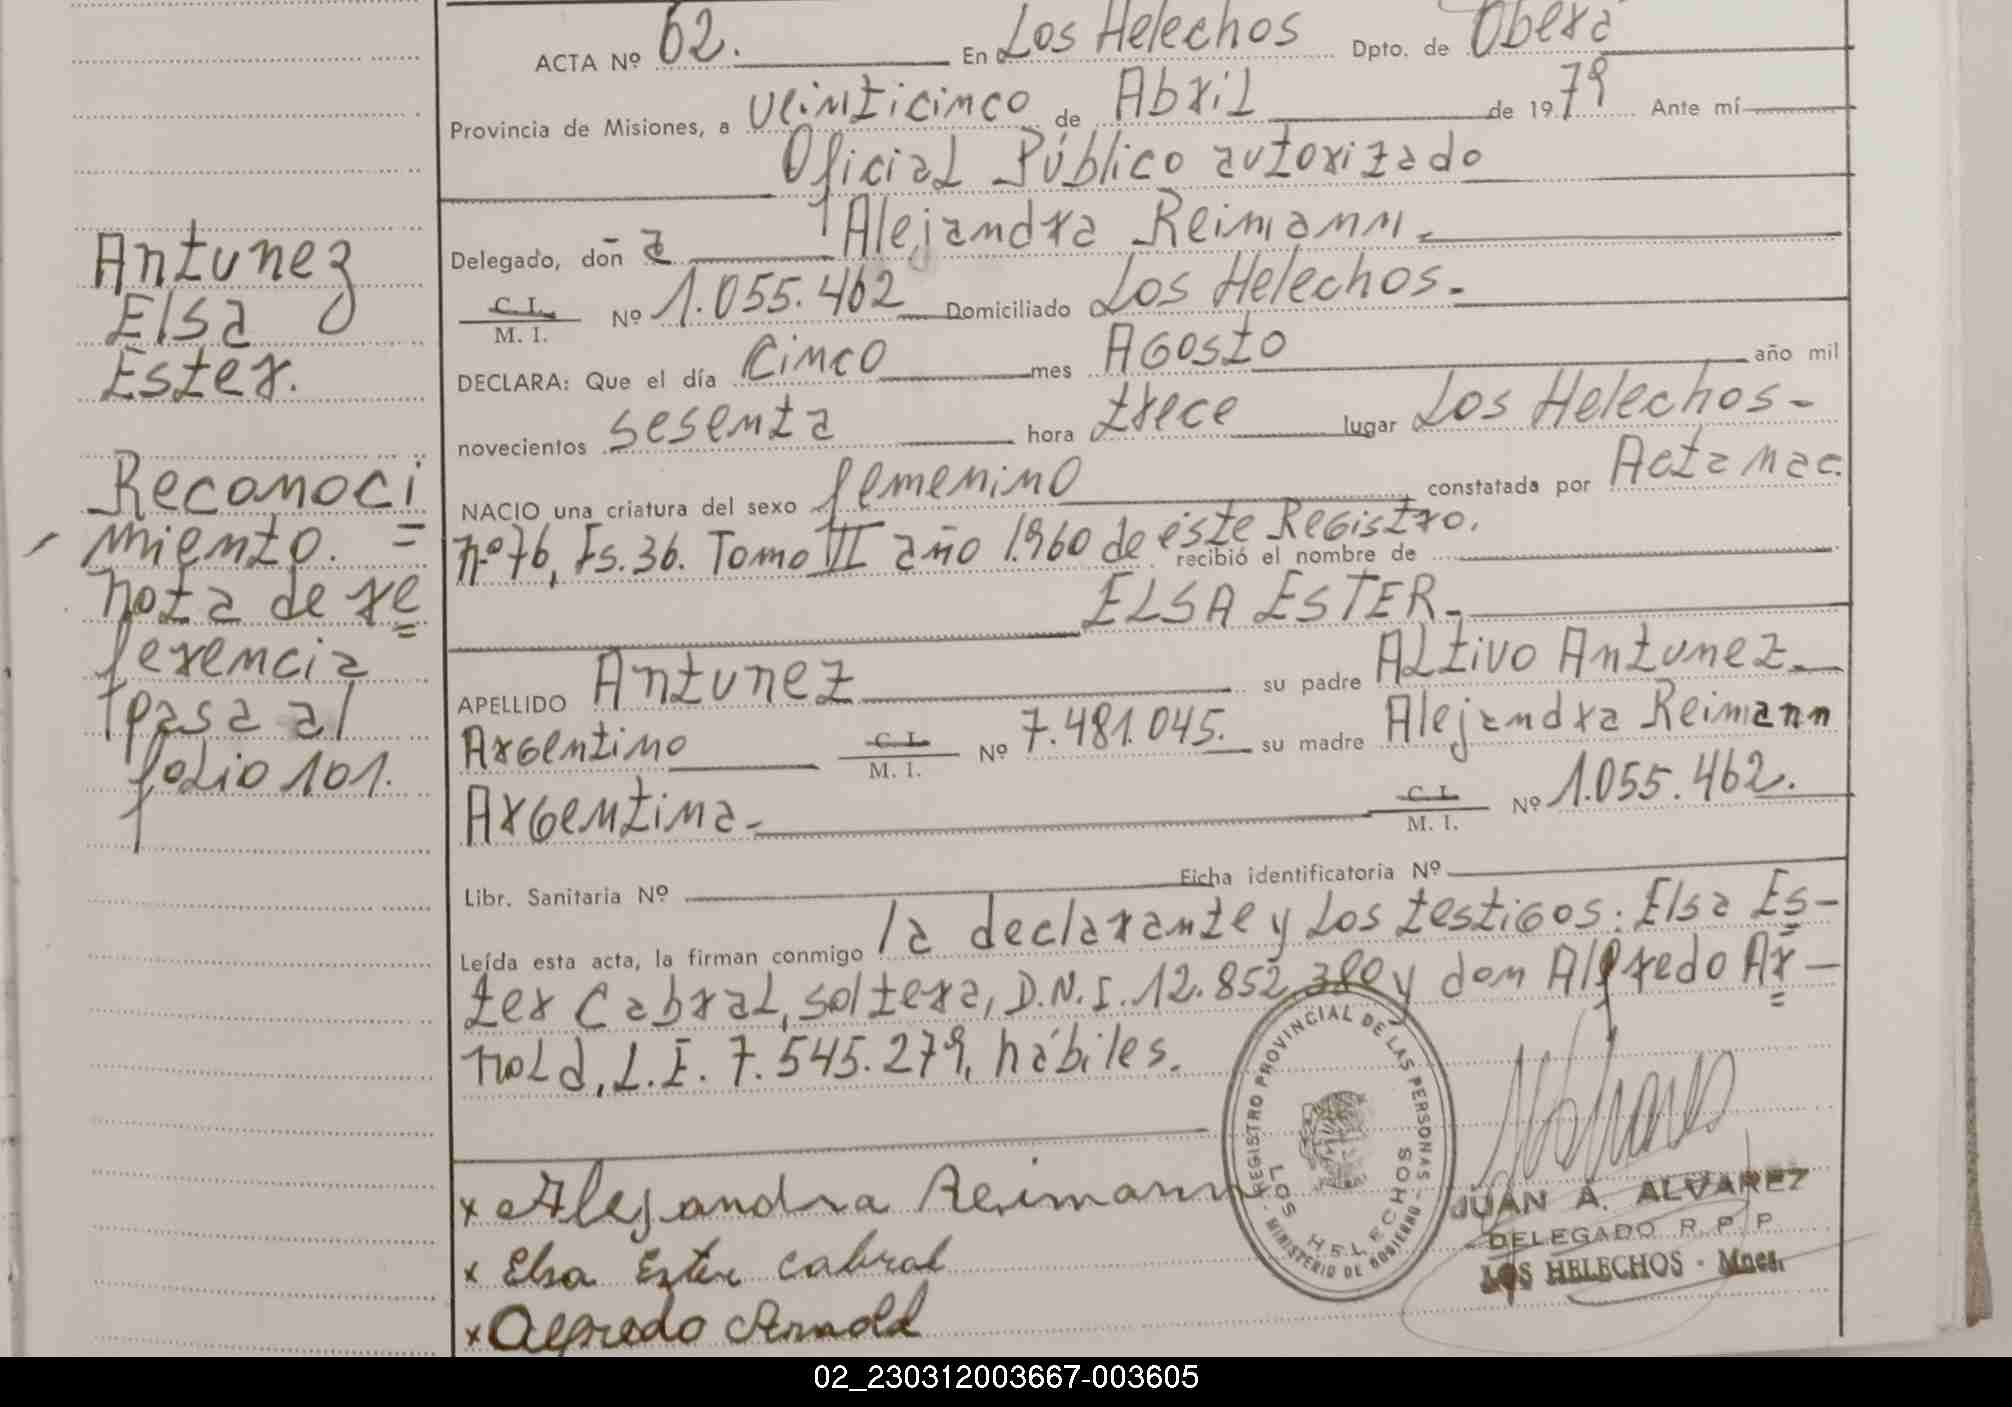 ACTA Nº 62. En Los Helechos Dpto. de Oberá
Provincia de Misiones, a veinticinco de Abril de 1979 Ante mí
Oficial Público autorizado
Delegado, doña Alejandra Reimann.
C. I.
M. I. Nº 1.055.462 Domiciliado Los Helechos.
DECLARA: Que el día cinco mes Agosto año mil
novecientos sesenta hora trece lugar Los Helechos-
NACIO una criatura del sexo femenino constatada por Acta nac.
nº 76, Fs. 36. Tomo III año 1.960 de éste Registro. recibió el nombre de
ELSA ESTER.
APELLIDO Antunez su padre Altivo Antunez.
Argentino C. I. M. I. Nº 7.481.045. su madre Alejandra Reimann
Argentina. C. I. M. I. Nº 1.055.462.
Libr. Sanitaria Nº Ficha identificatoria Nº
Leída esta acta, la firman conmigo la declarante y los testigos: Elsa Es-
ter Cabral, soltera, D.N.I. 12.852.380 y don Alfredo Ar-
nold, L.E. 7.545.279, hábiles.
Antunez
Elsa
Ester.
Reconoci
miento. =
nota de re
ferencia
pasa al
folio 101.
x Alejandra Reimann
x Elsa Ester Cabral
x Alfredo Arnold
REGISTRO PROVINCIAL DE LAS PERSONAS
LOS HELECHOS
- MINISTERIO DE GOBIERNO -
JUAN A. ALVAREZ
DELEGADO R. P. P.
LOS HELECHOS - Mnes.
02_230312003667-003605